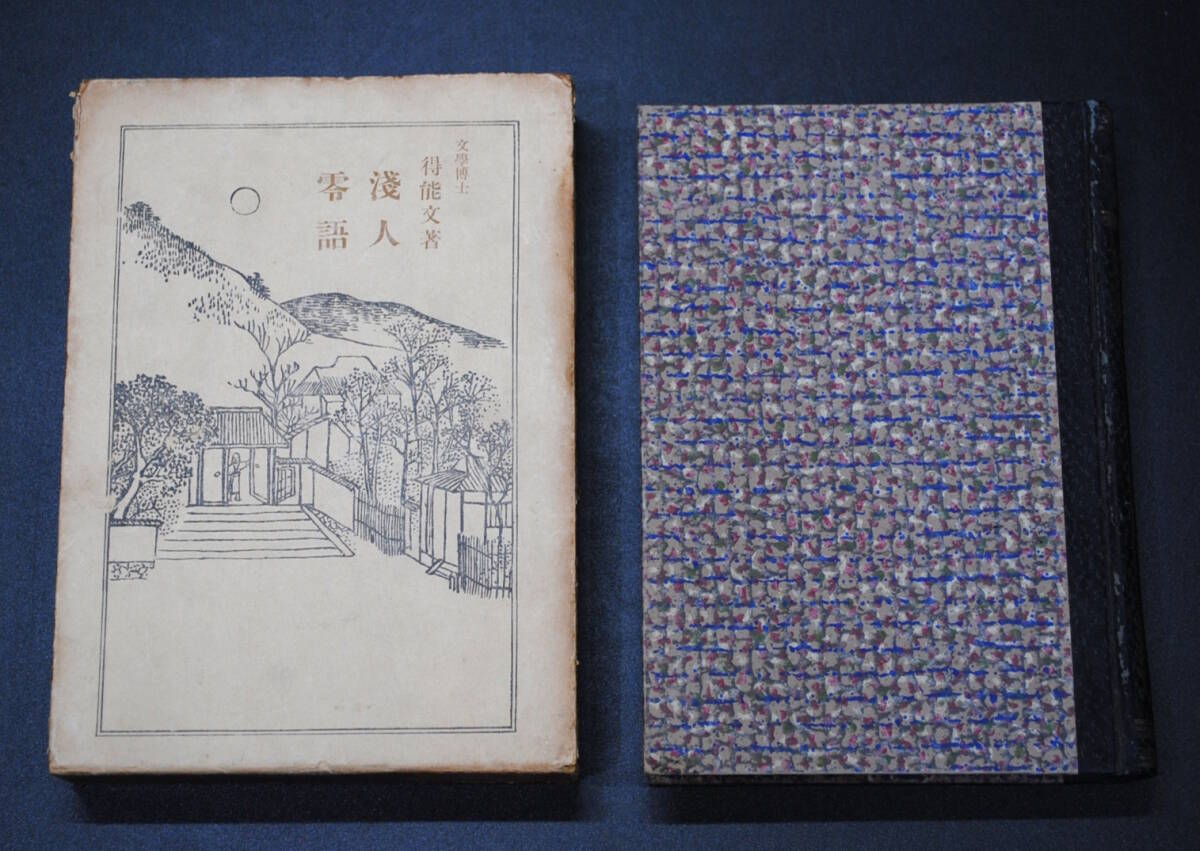 文學博士
得能文著
淺人
零語